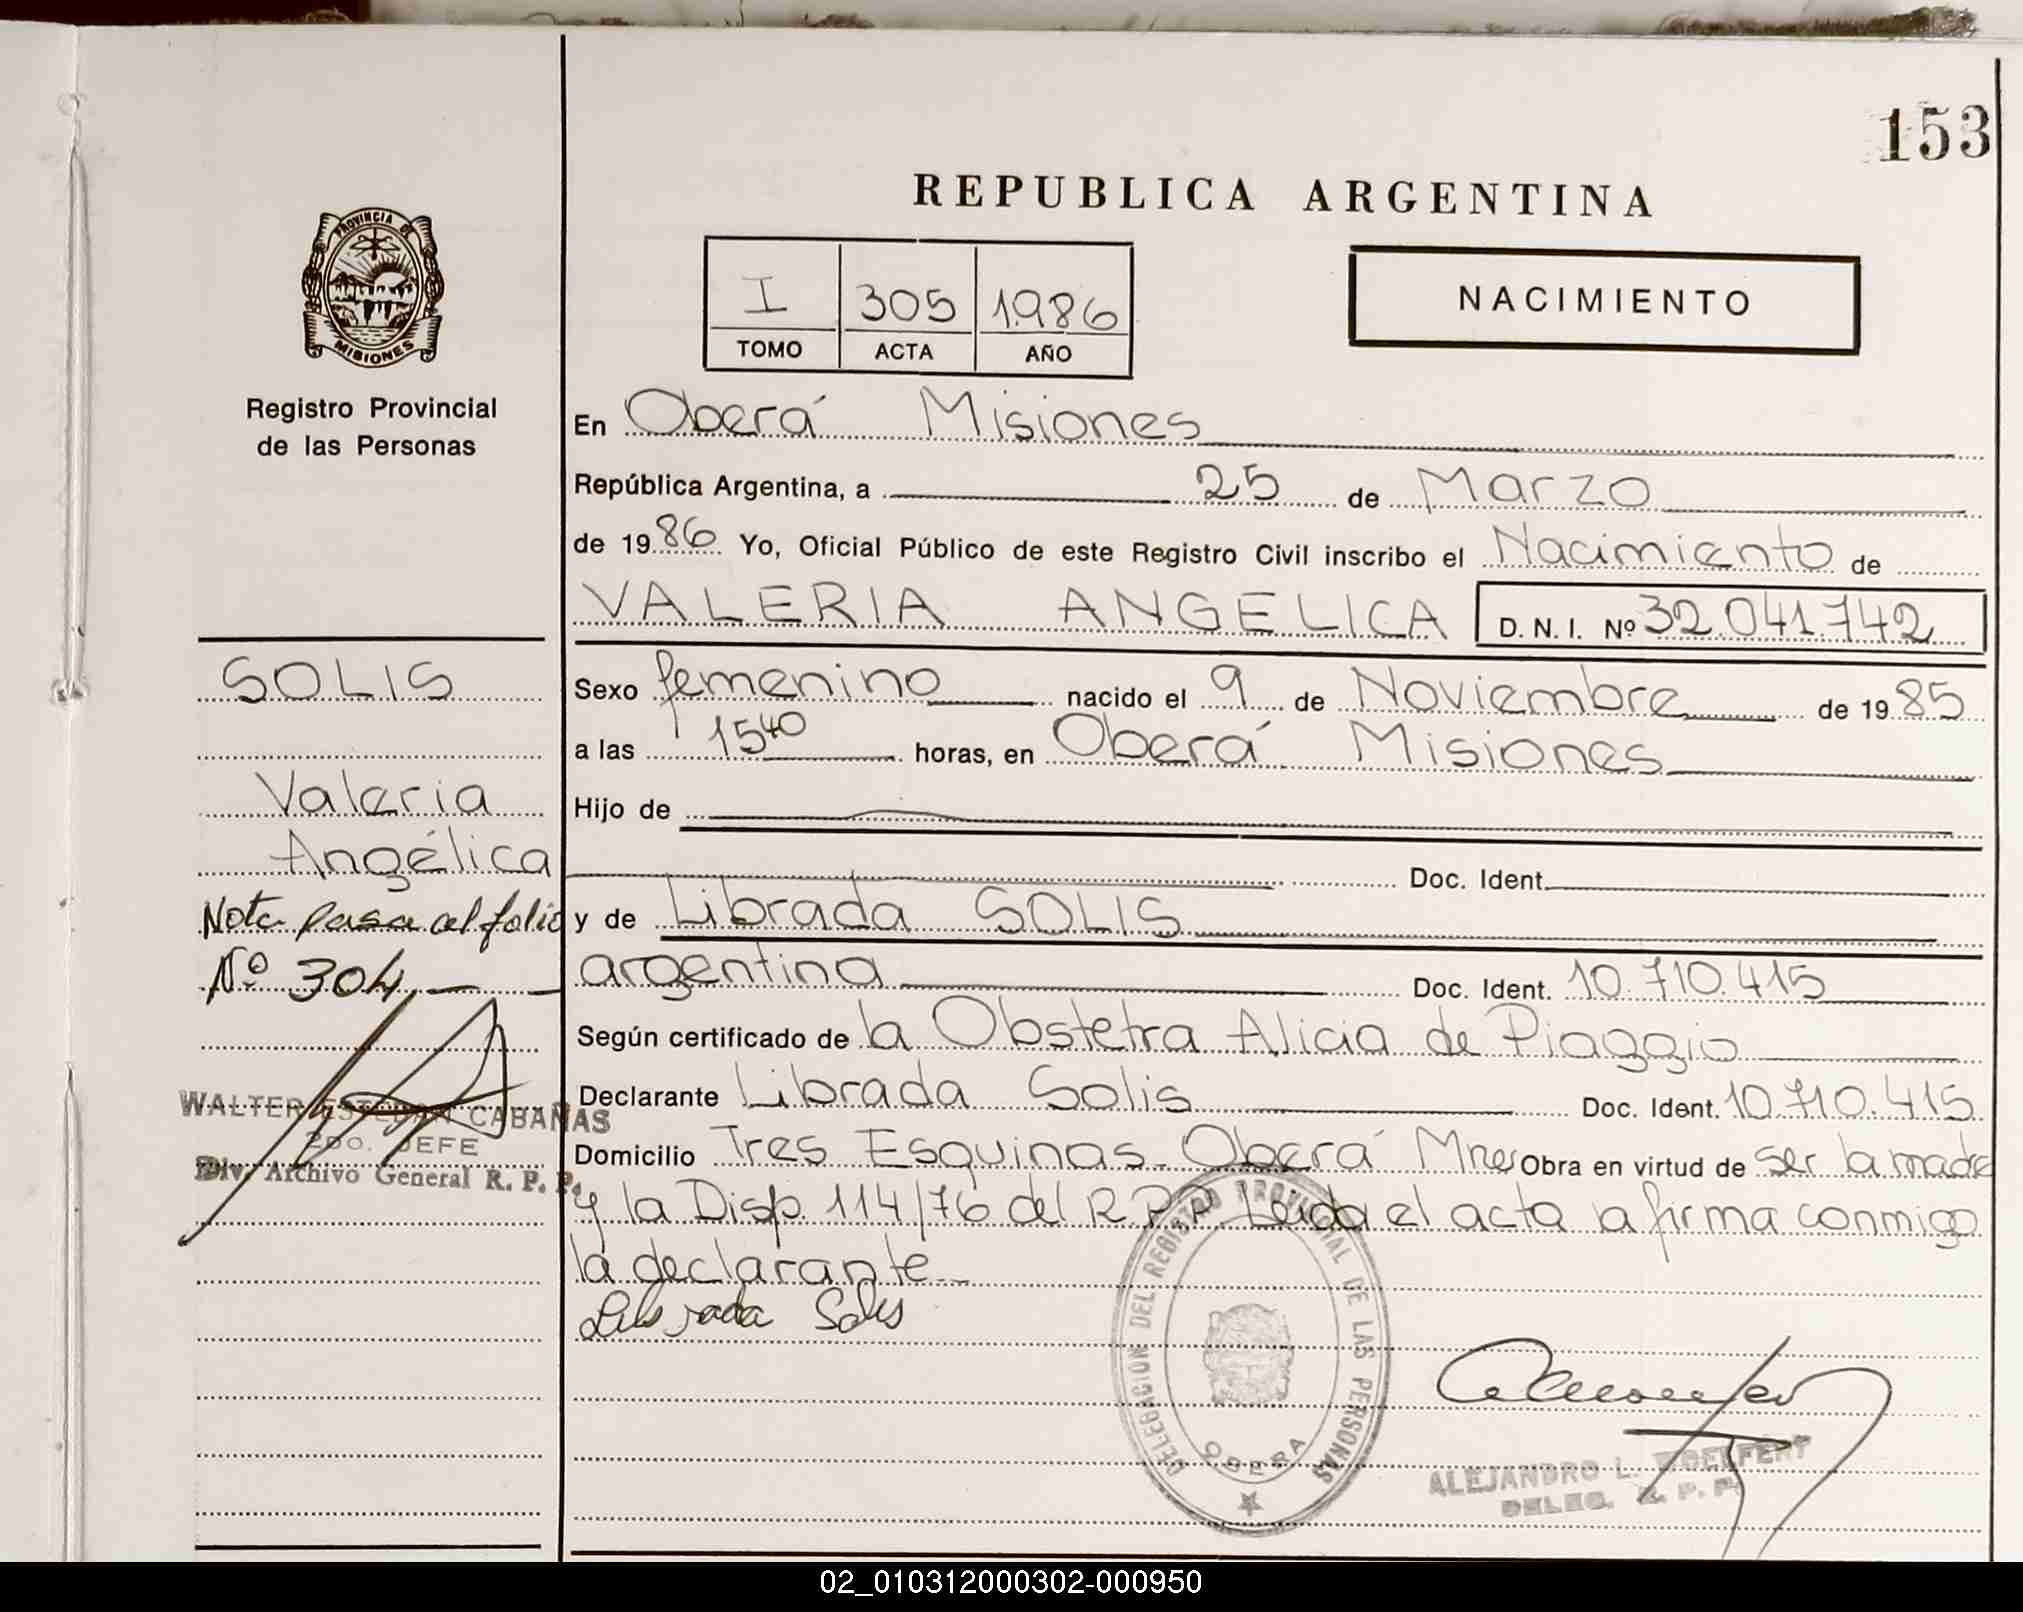 153
REPUBLICA ARGENTINA
PROVINCIA DE
MISIONES
Registro Provincial
de las Personas
I 305 1986
TOMO ACTA AÑO
NACIMIENTO
En Oberá Misiones
República Argentina, a 25 de Marzo
de 1986 Yo, Oficial Público de este Registro Civil inscribo el Nacimiento de
VALERIA ANGELICA D. N. I. Nº 32.041.742
SOLIS
Valeria
Angélica
Nota pasa al folio
Nº 304
WALTER ESTEBAN CABAÑAS
2DO. JEFE
Div. Archivo General R. P. P.
Sexo femenino nacido el 9 de Noviembre de 1985
a las 15 40 horas, en Oberá Misiones
Hijo de
Doc. Ident.
y de Librada SOLIS
argentina Doc. Ident. 10.710.415
Según certificado de la Obstetra Alicia de Piaggio
Declarante Librada Solis Doc. Ident. 10.710.415
Domicilio Tres Esquinas Oberá Mnes Obra en virtud de ser la madre
y la Disp. 114/76 del R.P.P. Leida el acta la firma conmigo
la declarante
Librada Solis
DELEGACION DEL REGISTRO PROVINCIAL DE LAS PERSONAS
OBERA
ALEJANDRO L.
DELEG. R. P. P.
02_010312000302-000950